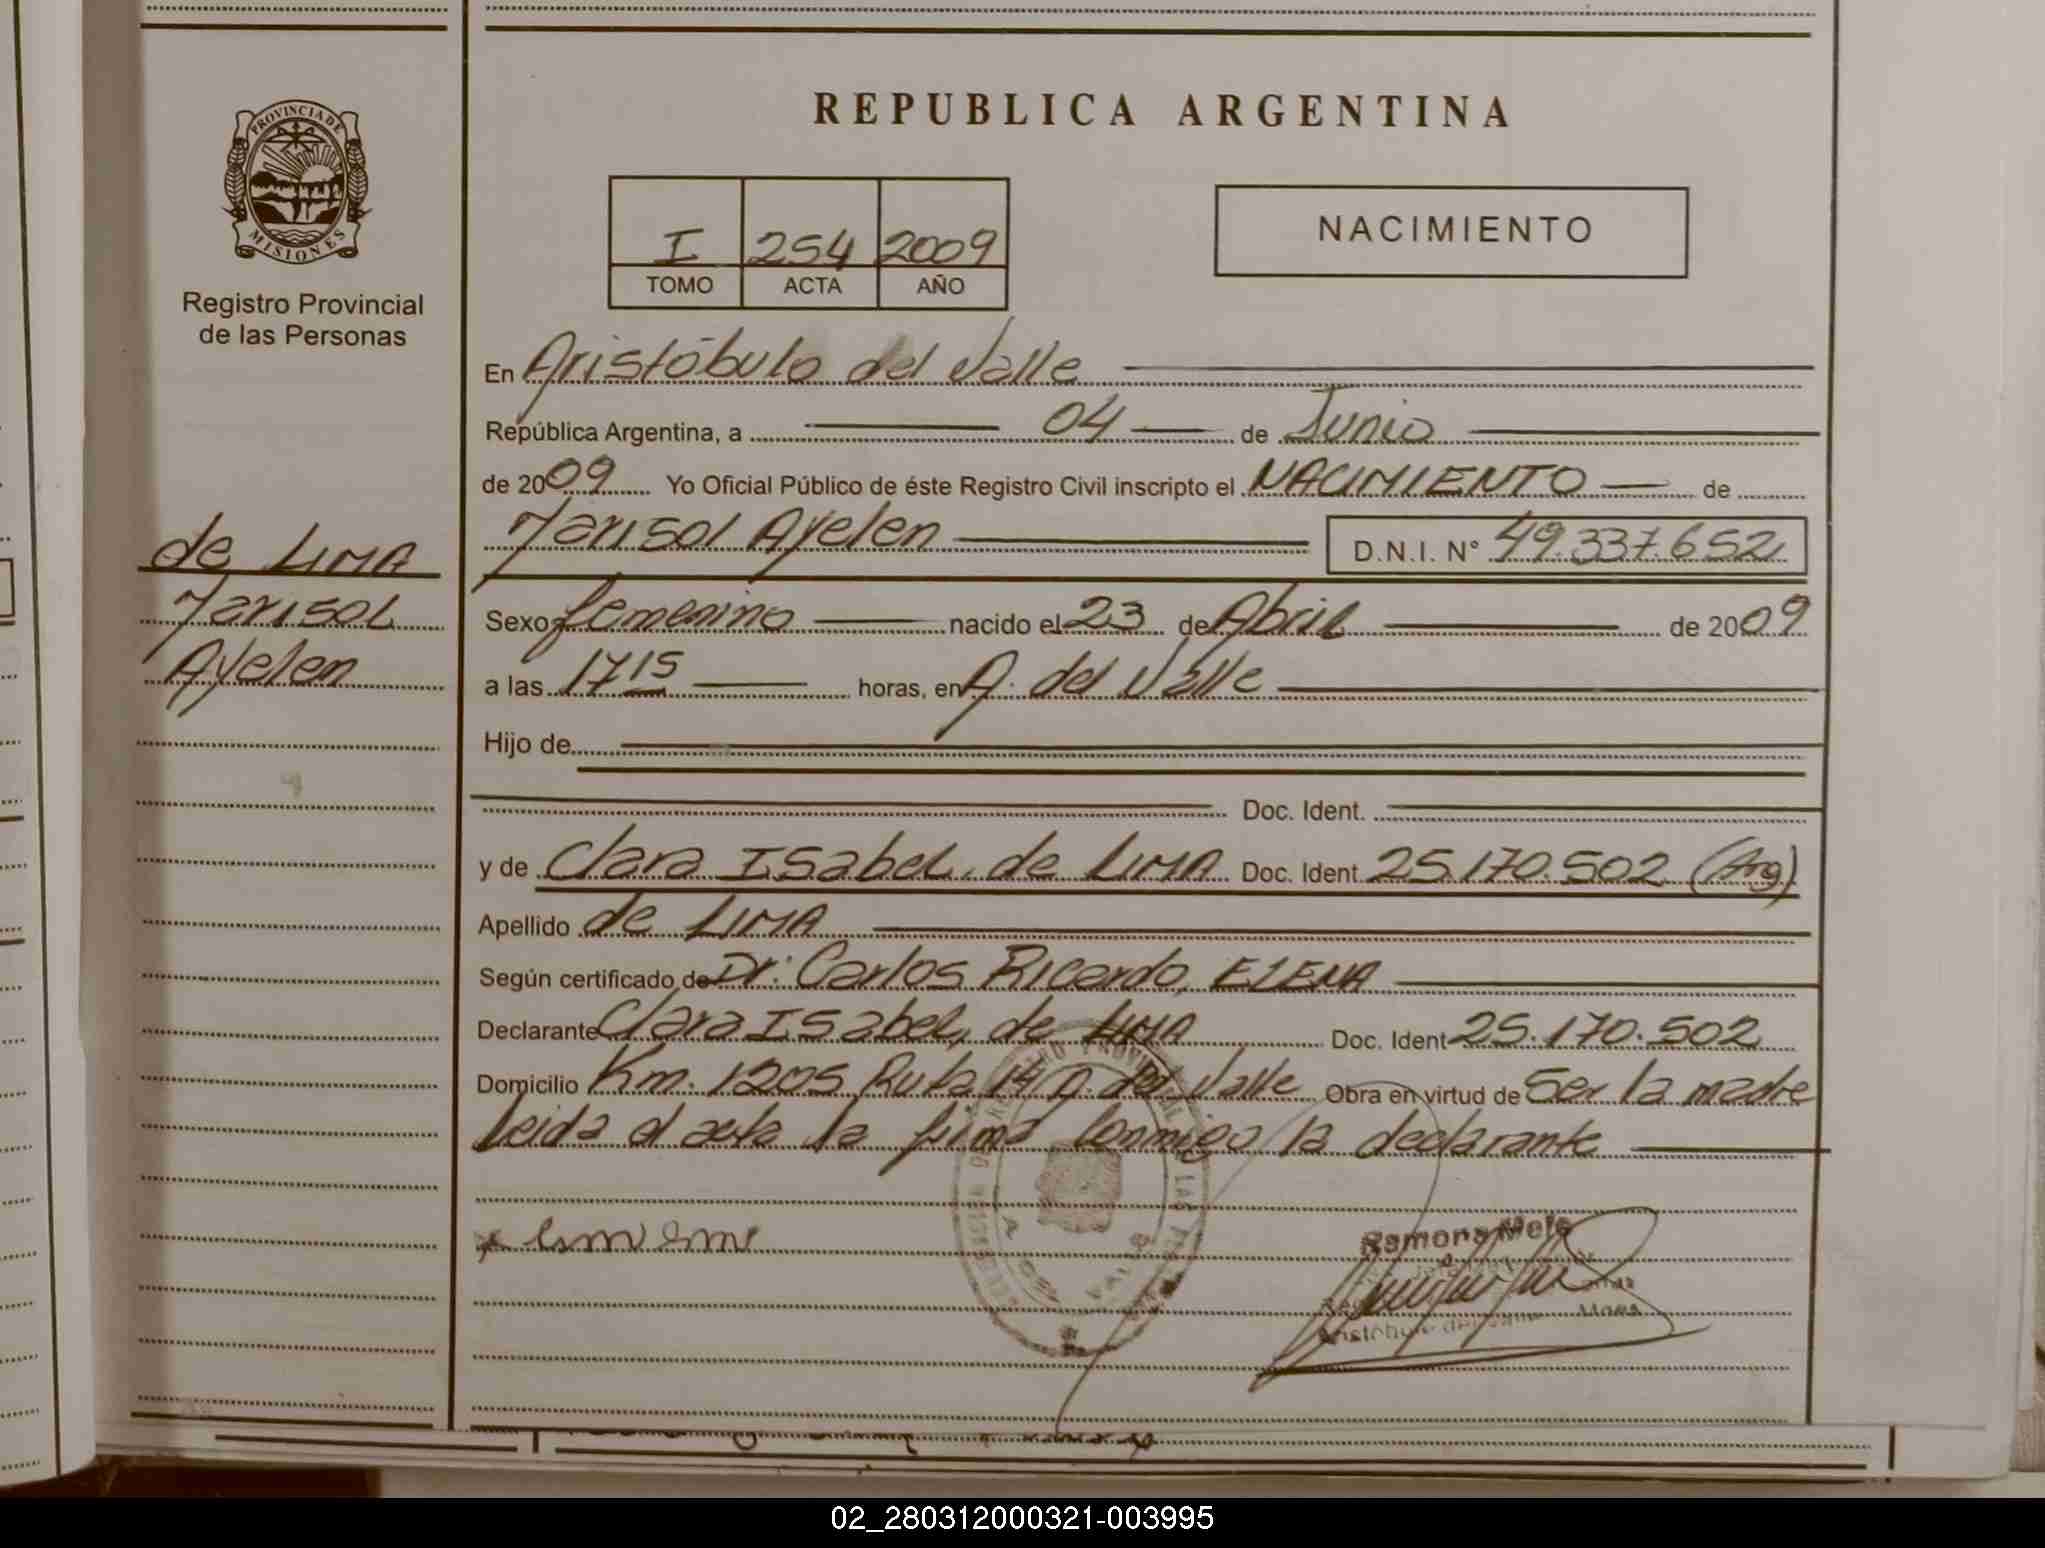 PROVINCIA DE
MISIONES
Registro Provincial
de las Personas
de LIMA
Marisol
Ayelen
REPUBLICA ARGENTINA
I 254 2009
TOMO ACTA AÑO
NACIMIENTO
En Aristóbulo del Valle
República Argentina, a 04 de Junio
de 2009 Yo Oficial Público de éste Registro Civil inscripto el NACIMIENTO de
Marisol Ayelen D.N.I. N° 49.337.652
Sexo femenino nacido el 23 de Abril de 2009
a las 17 15 horas, en A. del Valle
Hijo de
Doc. Ident.
y de Clara Isabel, de LIMA Doc. Ident 25.170.502 (Arg)
Apellido de LIMA
Según certificado de Dr. Carlos Ricardo, ELENA
Declarante Clara Isabel, de LIMA Doc. Ident 25.170.502
Domicilio Km. 1205 Ruta 14 A. del Valle Obra en virtud de Ser la madre
Leida el acta la firma conmigo la declarante
Ramona Melo
Aristóbulo del Valle
02_280312000321-003995